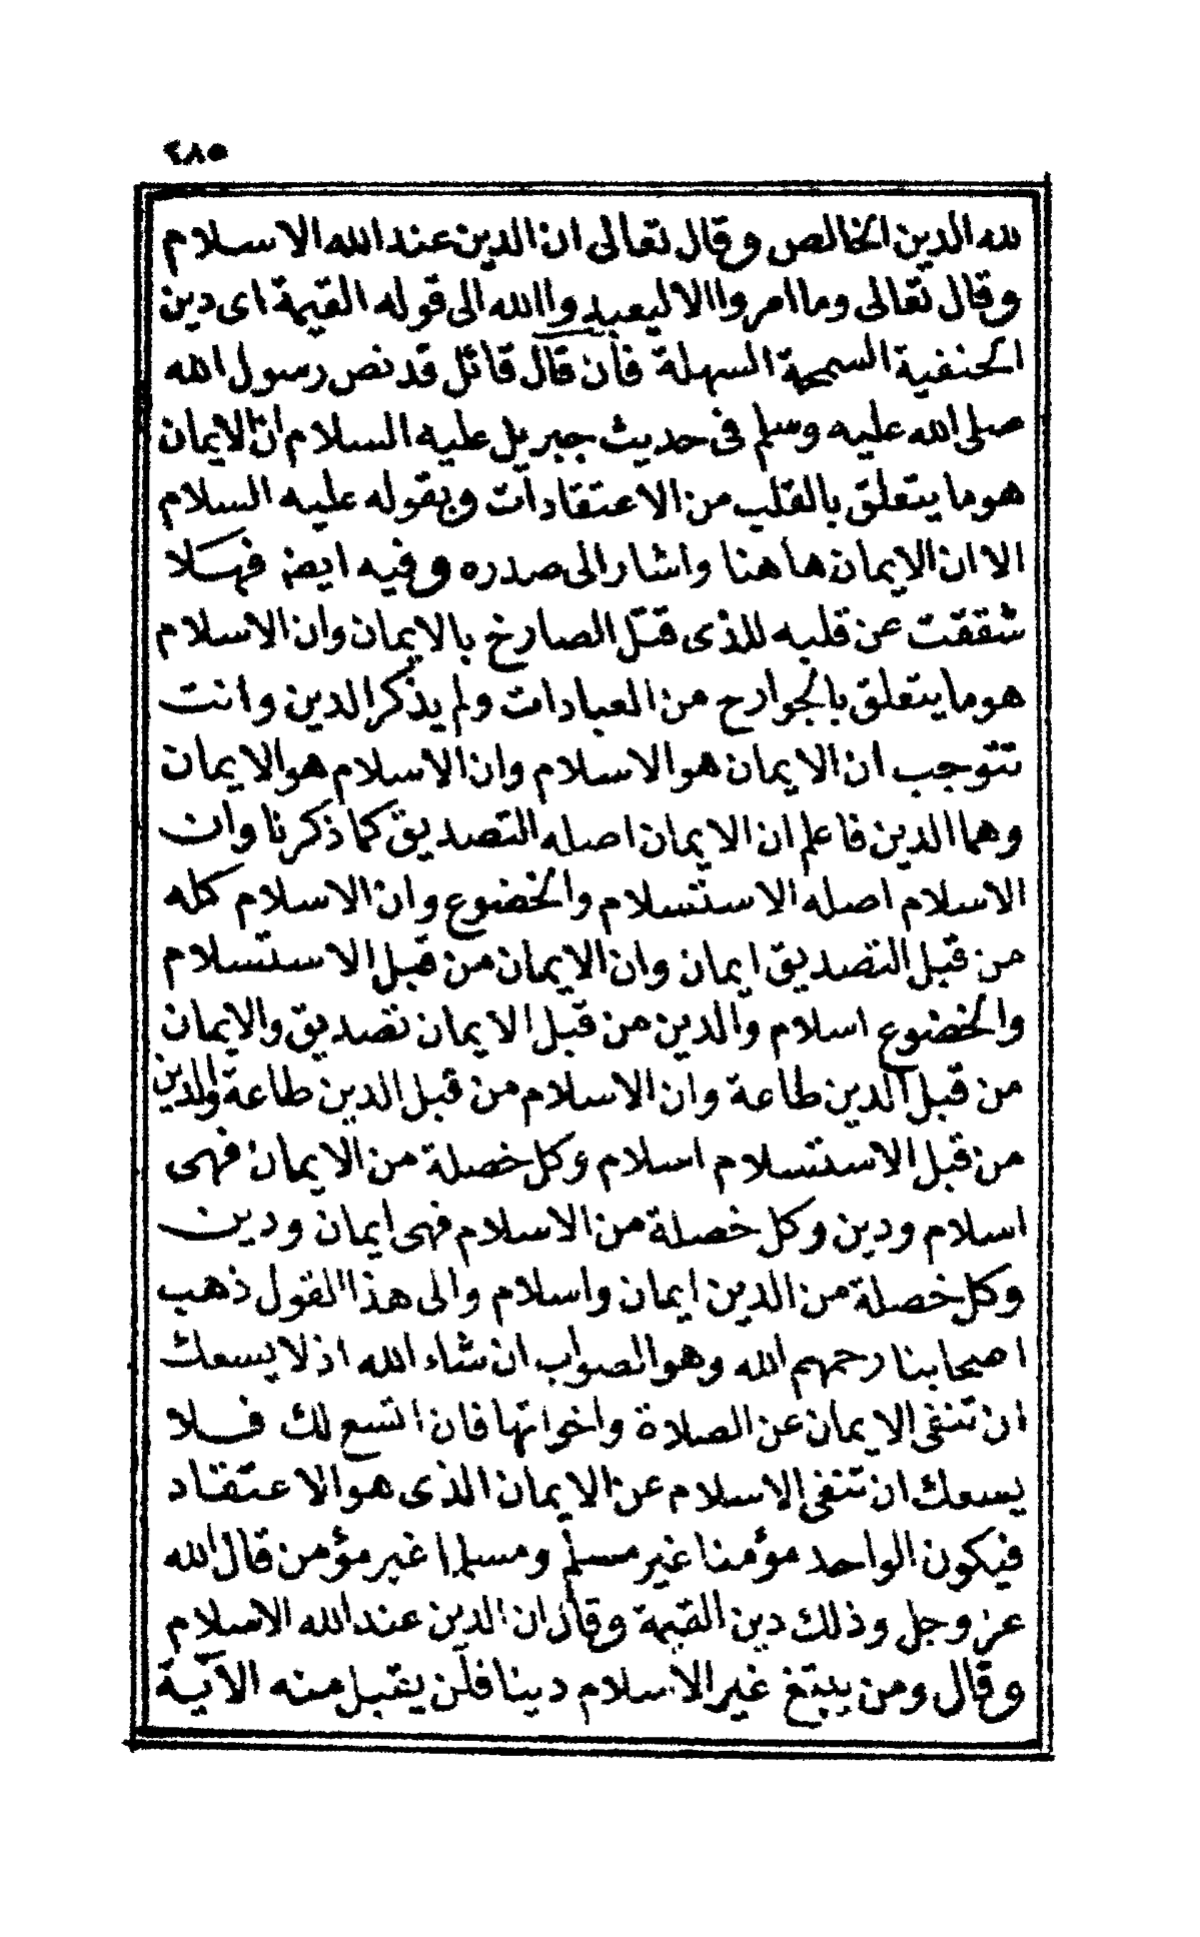 ٢٨٥
لله الدين الخالص وقال تعالى ان الدين عند الله الاسلام
وقال تعالى وما امروا الا ليعبدوا الله الى قوله القيمة اى دين
الحنفية السمحة السهلة فأن قال قائل قد نص رسول الله
صلى الله عليه وسلم فى حديث جبريل عليه السلام ان الايمان
هوما يتعلق بالقلب من الاعتقادات وبقوله عليه السلام
الا ان الايمان هاهنا واشار الى صدره وفيه ايضه فهلا
شققت عن قلبه للذى قتل الصارخ بالايمان وان الاسلام
هوما يتعلق بالجوارح من العبادات ولم يذكر الدين وانت
تتوجب ان الايمان هو الاسلام وان الاسلام هو الايمان
وهما الدين فاعلم ان الايمان اصله التصديق كما ذكرنا وان
الاسلام اصله الاستسلام والخضوع وان الاسلام كله
من قبل التصديق ايمان وان الايمان من قبل الاستسلام
والخضوع اسلام والدين من قبل الايمان تصديق والايمان
من قبل الدين طاعة وان الاسلام من قبل الدين طاعة والدين
من قبل الاستسلام اسلام وكل خصلة من الايمان فهى
اسلام ودين وكل خصلة من الاسلام فهى ايمان ودين
وكل خصلة من الدين ايمان واسلام والى هذا القول ذهب
اصحابنا رحمهم الله وهو الصواب ان شاء الله اذ لا يسعك
ان تنفى الايمان عن الصلاة واخواتها فان اتسع لك فلا
يسعك ان تنفى الاسلام عن الايمان الذى هو الاعتقاد
فيكون الواحد مؤمنا غير مسلم ومسلما غير مؤمن قال الله
عز وجل وذلك دين القيمة وقال ان الدين عند الله الاسلام
وقال ومن يبتغ غير الاسلام دينا فلن يقبل منه الآية